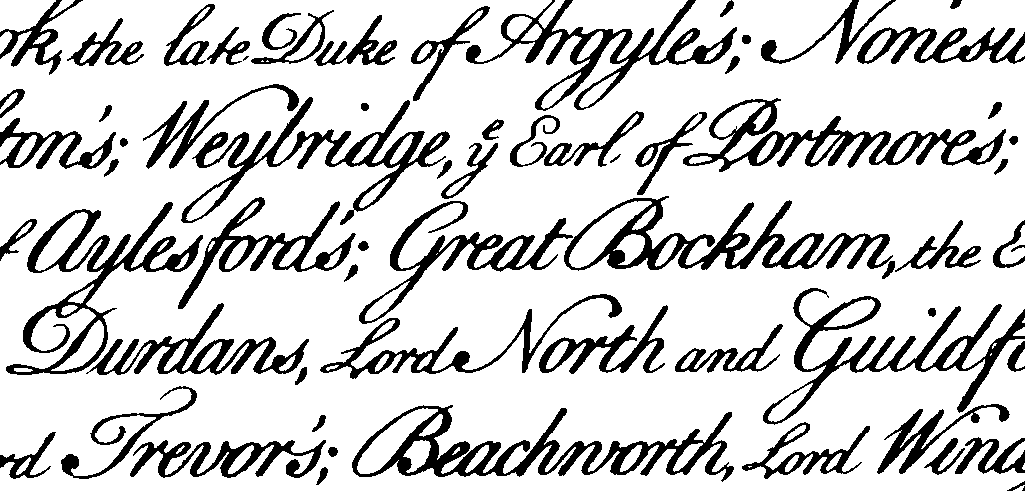 ok, the late Duke of Argyle's; Nonesu
ton's; Weybridge, yᵉ Earl of Portmore's;
f Aylesford's; Great Bockham, the E
Durdans, Lord North and Guildfo
rd Trevor's; Beachworth, Lord Wind